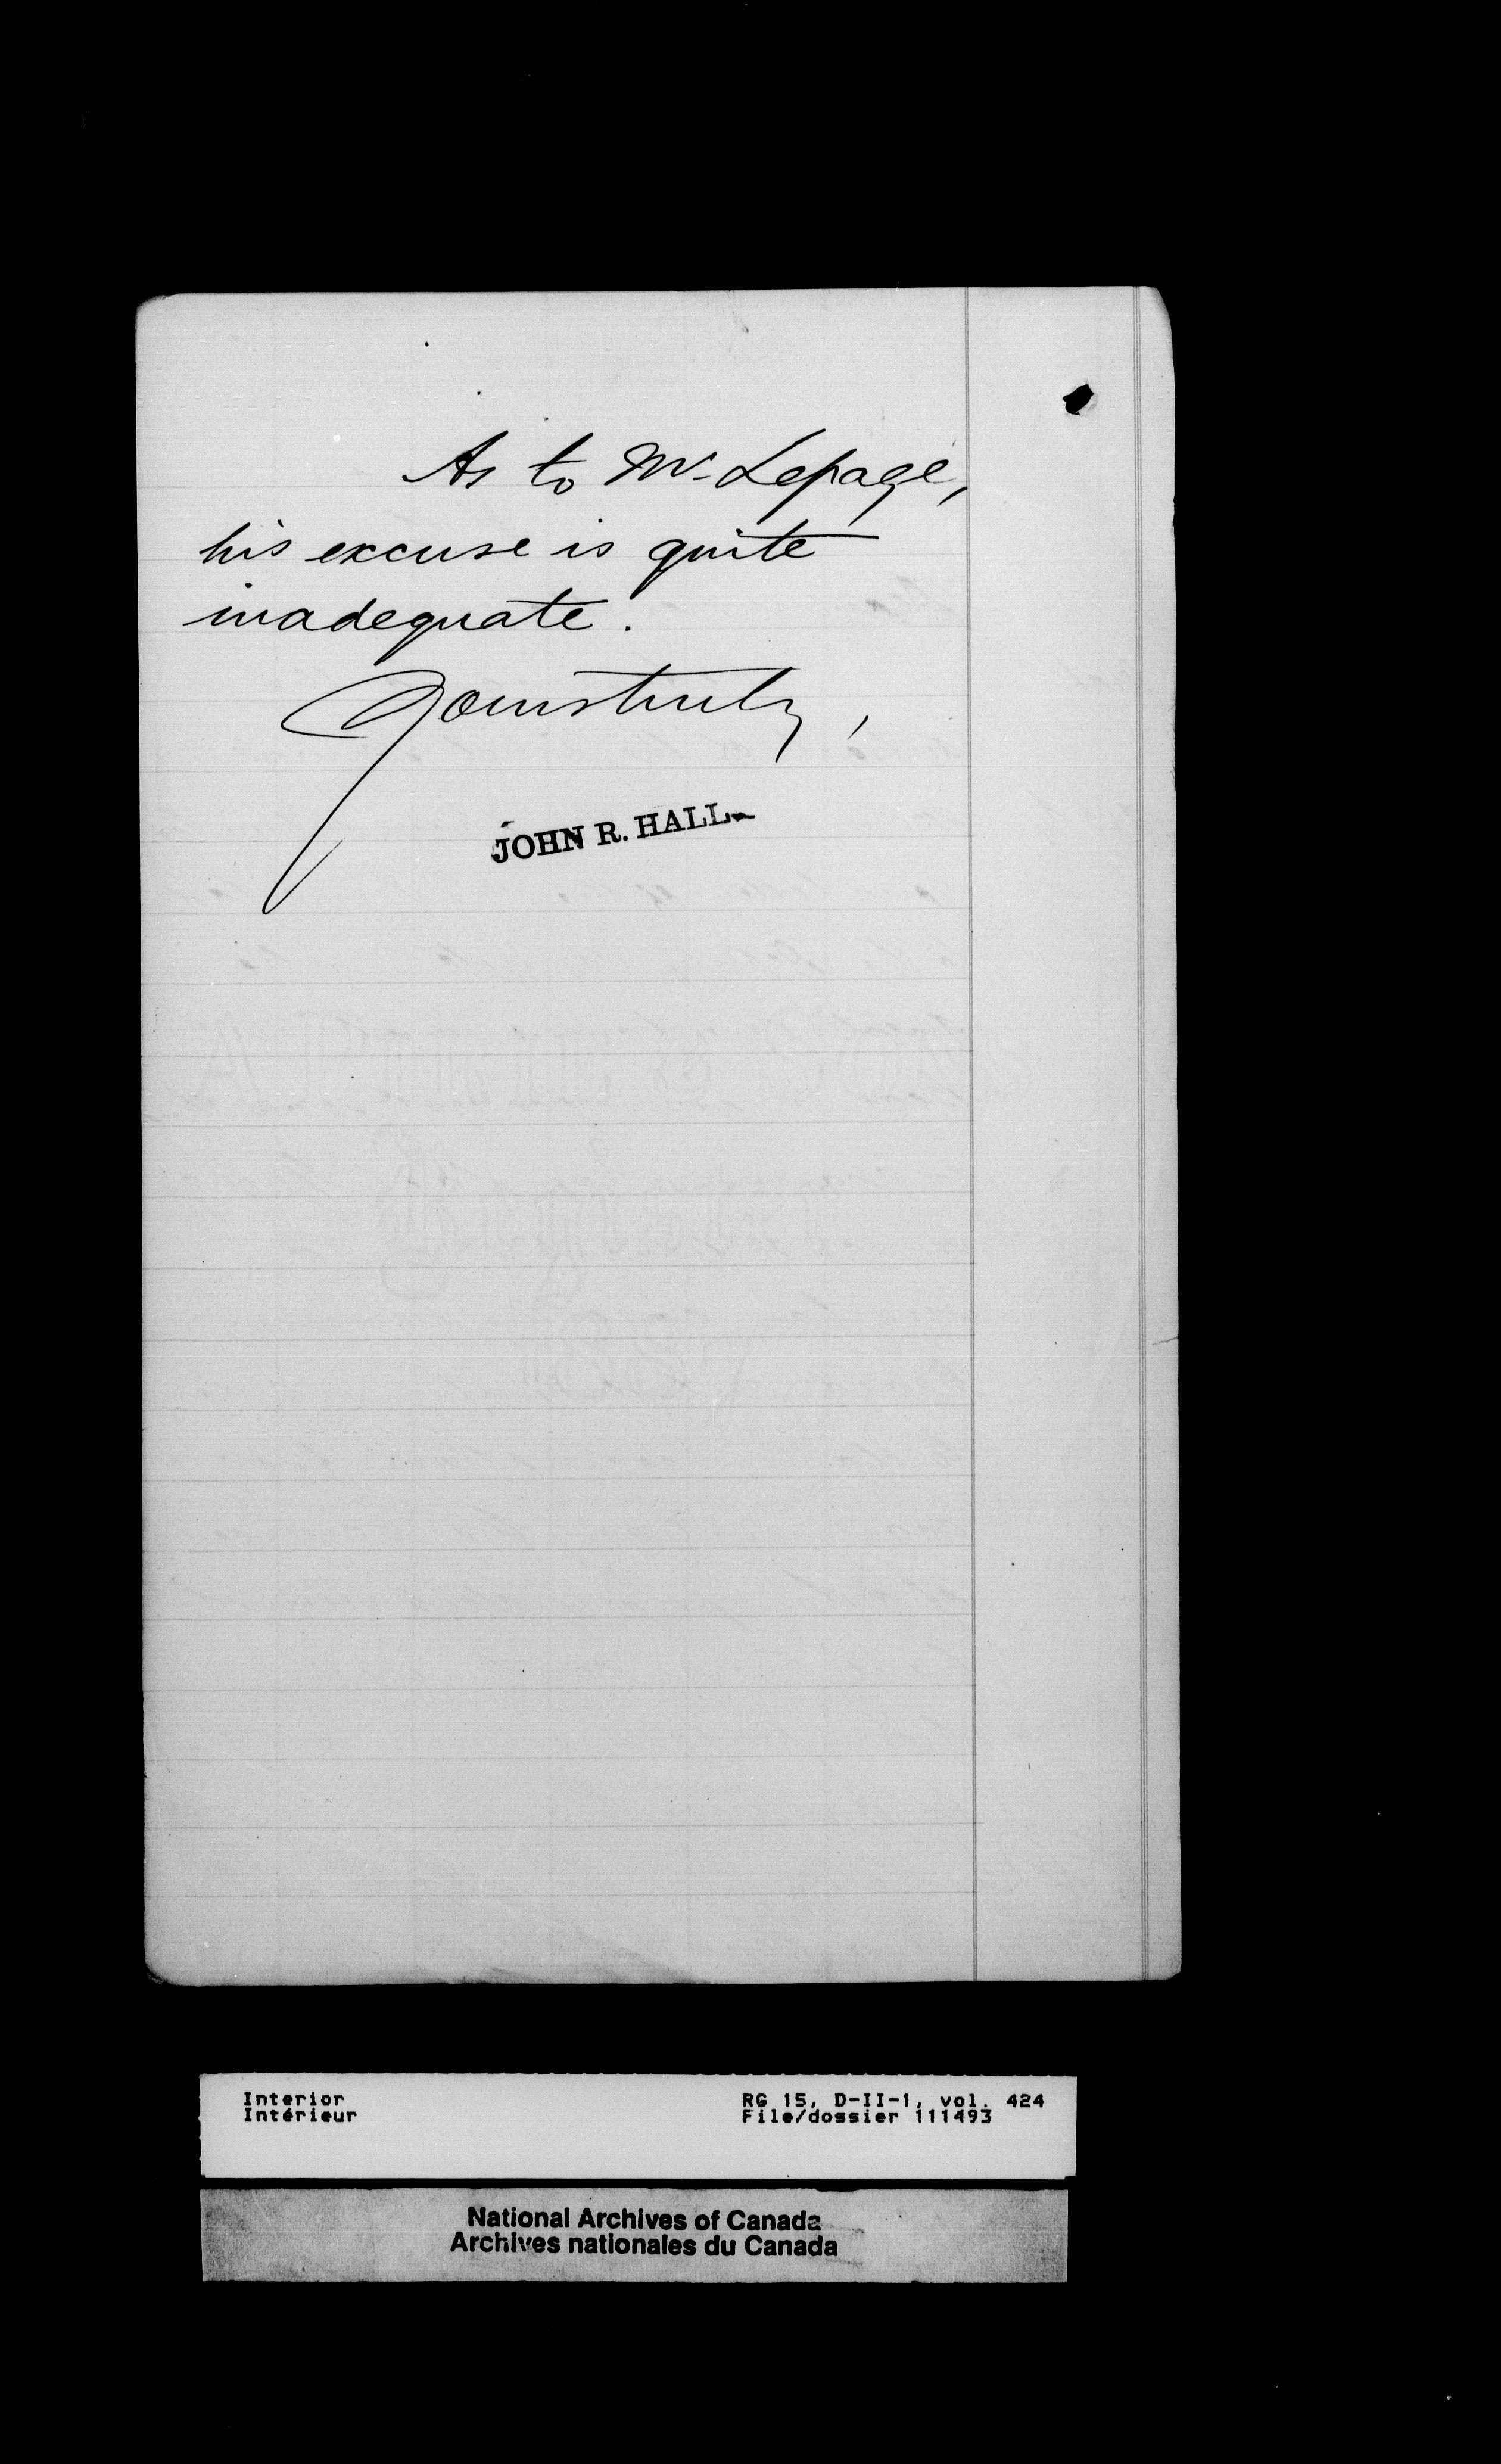 As to Mr. Lepage,
his excuse is quite
inadequate.
Yours truly,
JOHN R. HALL
Interior
Intérieur
RG 15, D-II-1, vol. 424
File/dossier 111493
National Archives of Canada
Archives nationales du Canada